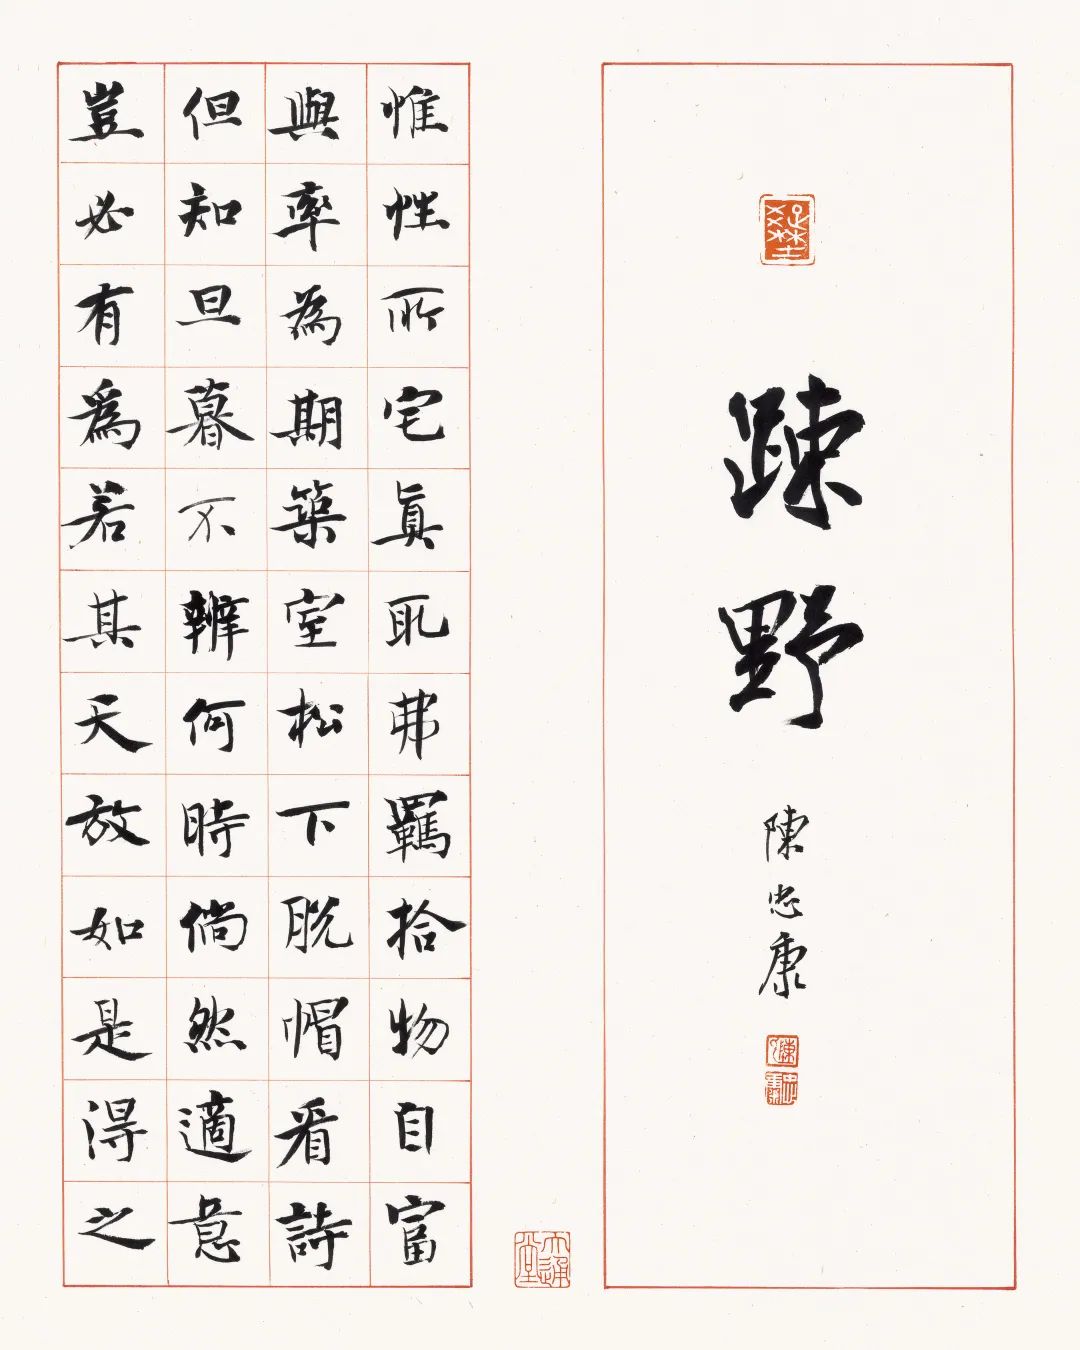 踈野
陳忠康
惟性所宅真取弗羈拾物自富
與率為期築室松下脫帽看詩
但知旦暮不辨何時倘然適意
豈必有爲若其天放如是得之